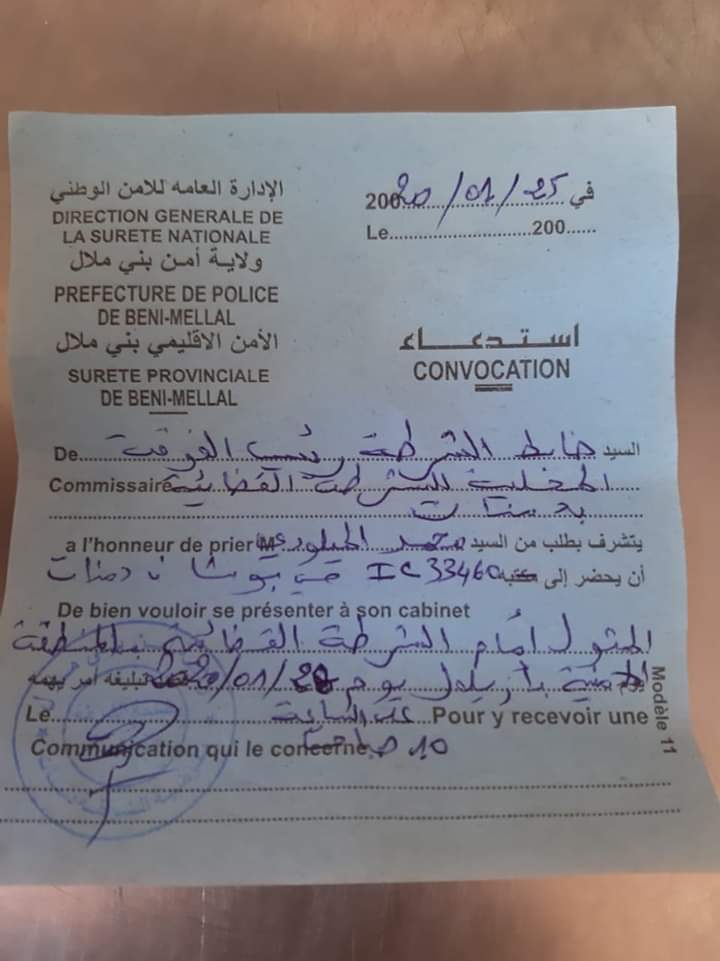 الإدارة العامه للامن الوطني
DIRECTION GENERALE DE
LA SURETE NATIONALE
ولاية أمن بني ملال
PREFECTURE DE POLICE
DE BENI-MELLAL
الأمن الاقليمي بني ملال
SURETE PROVINCIALE
DE BENI-MELLAL
في 2020/01/25
Le............................200......
استدعاء
CONVOCATION
السيد ضابط الشرطة رئيس الفرقة De
المحلية للشرطة القضائية Commissaire
بدمنات
يتشرف بطلب من السيد محمد a l'honneur de prier M
أن يحضر إلى مكتبه IC33460 دمنات
De bien vouloir se présenter à son cabinet
المثول أمام الشرطة القضائية بالمنطقة
الأمنية بأزيلال يوم 2020/01/28 تبليغه أمر يهمه
Le على الساعة Pour y recevoir une
Communication qui le concerne 10 صباحا
Modèle 11